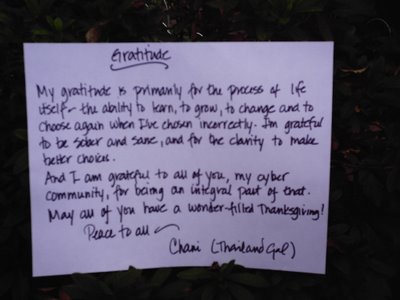 Gratitude
My gratitude is primarily for the process of life
itself - the ability to learn, to grow, to change and to
choose again when I've chosen incorrectly. I'm grateful
to be sober and sane, and for the clarity to make
better choices.
And I am grateful to all of you, my cyber
community, for being an integral part of that.
May all of you have a wonder-filled Thanksgiving!
Peace to all ~
Chani (Thailand Gal)